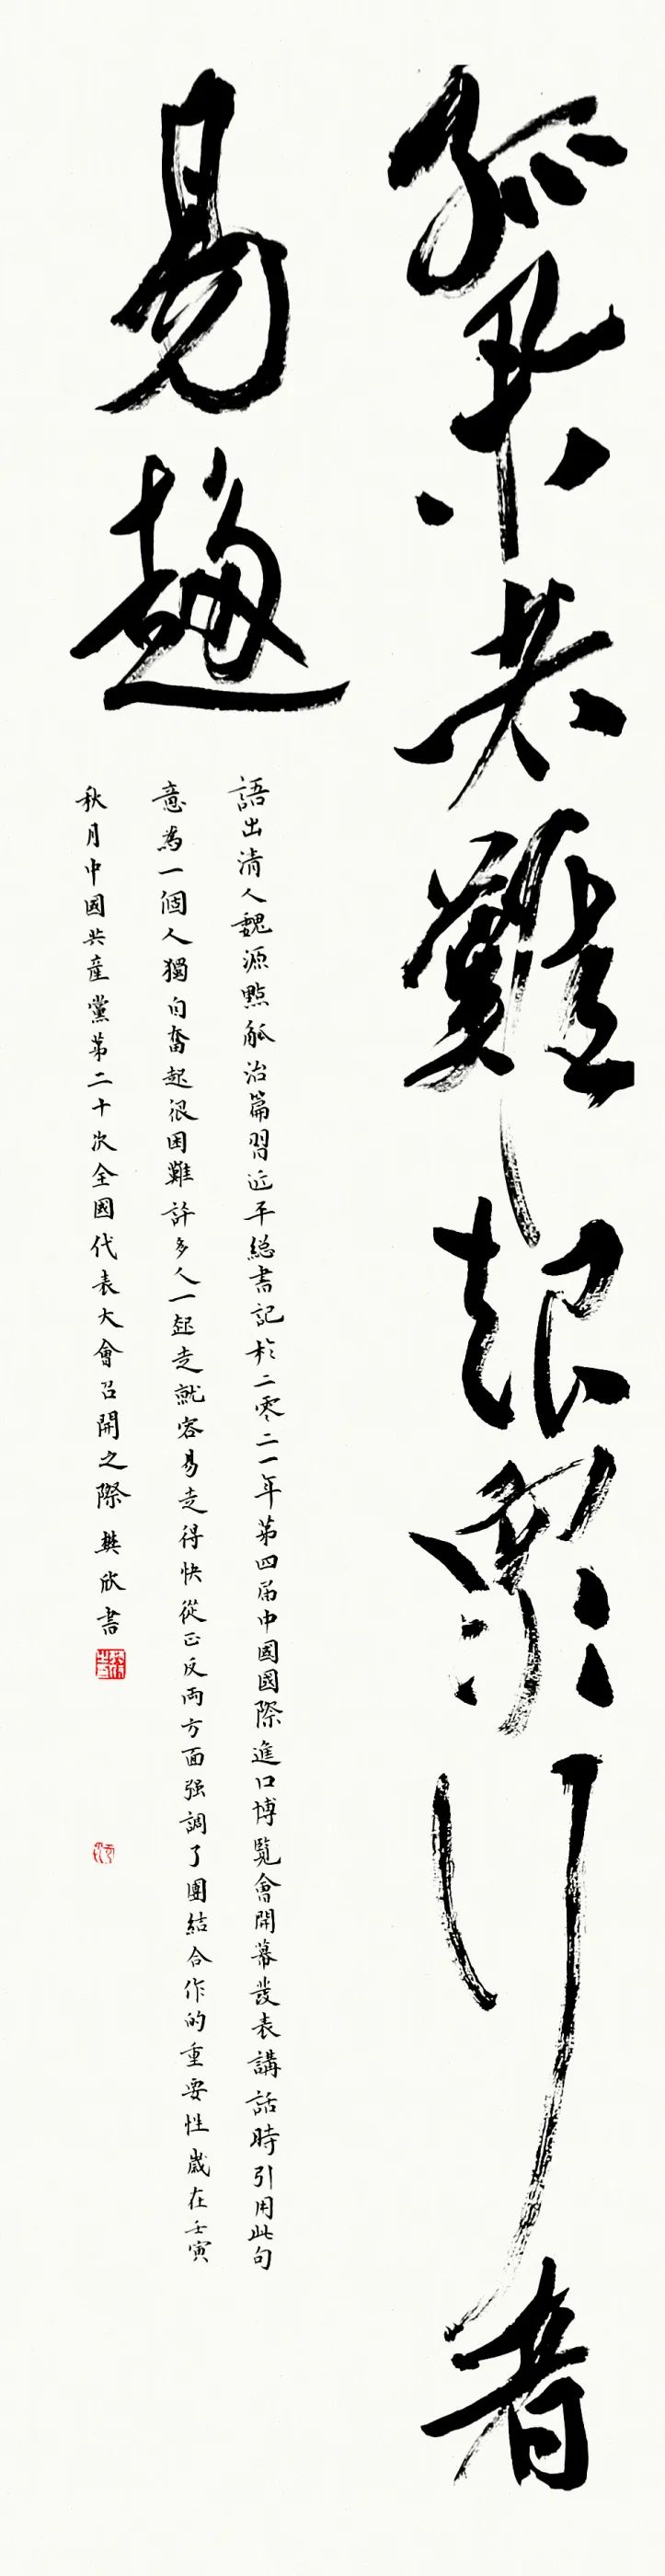 孤舉者難起眾行者
易趨
語出清人魏源默觚治篇習近平總書記於二零二一年第四届中國國際進口博覽會開幕發表講話時引用此句
意為一個人獨自奮起很困難許多人一起走就容易走得快從正反兩方面强調了團結合作的重要性歲在壬寅
秋月中國共產黨第二十次全國代表大會召開之際 樊欣書